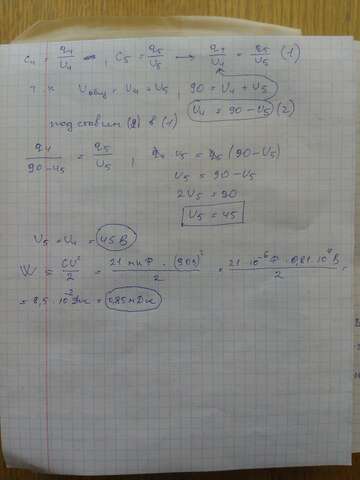 C₄ = q₄/U₄ , C₅ = q₅/U₅ → q₄/U₄ = q₅/U₅ (1)
т.к U общ = U₄ + U₅ , 90 = U₄ + U₅
U₄ = 90 - U₅ (2)
подставим (2) в (1)
q₄/(90-U₅) = q₅/U₅ ; q₄ · U₅ = q₅ (90-U₅)
U₅ = 90 - U₅
2U₅ = 90
U₅ = 45
U₅ = U₄ = 45 В
W = CU²/2 = 21 мкФ · (90В)²/2 = 21 · 10⁻⁶ Ф · 0,81 · 10⁴ В/2 =
= 8,5 · 10⁻² Дж = 0,85 мДж